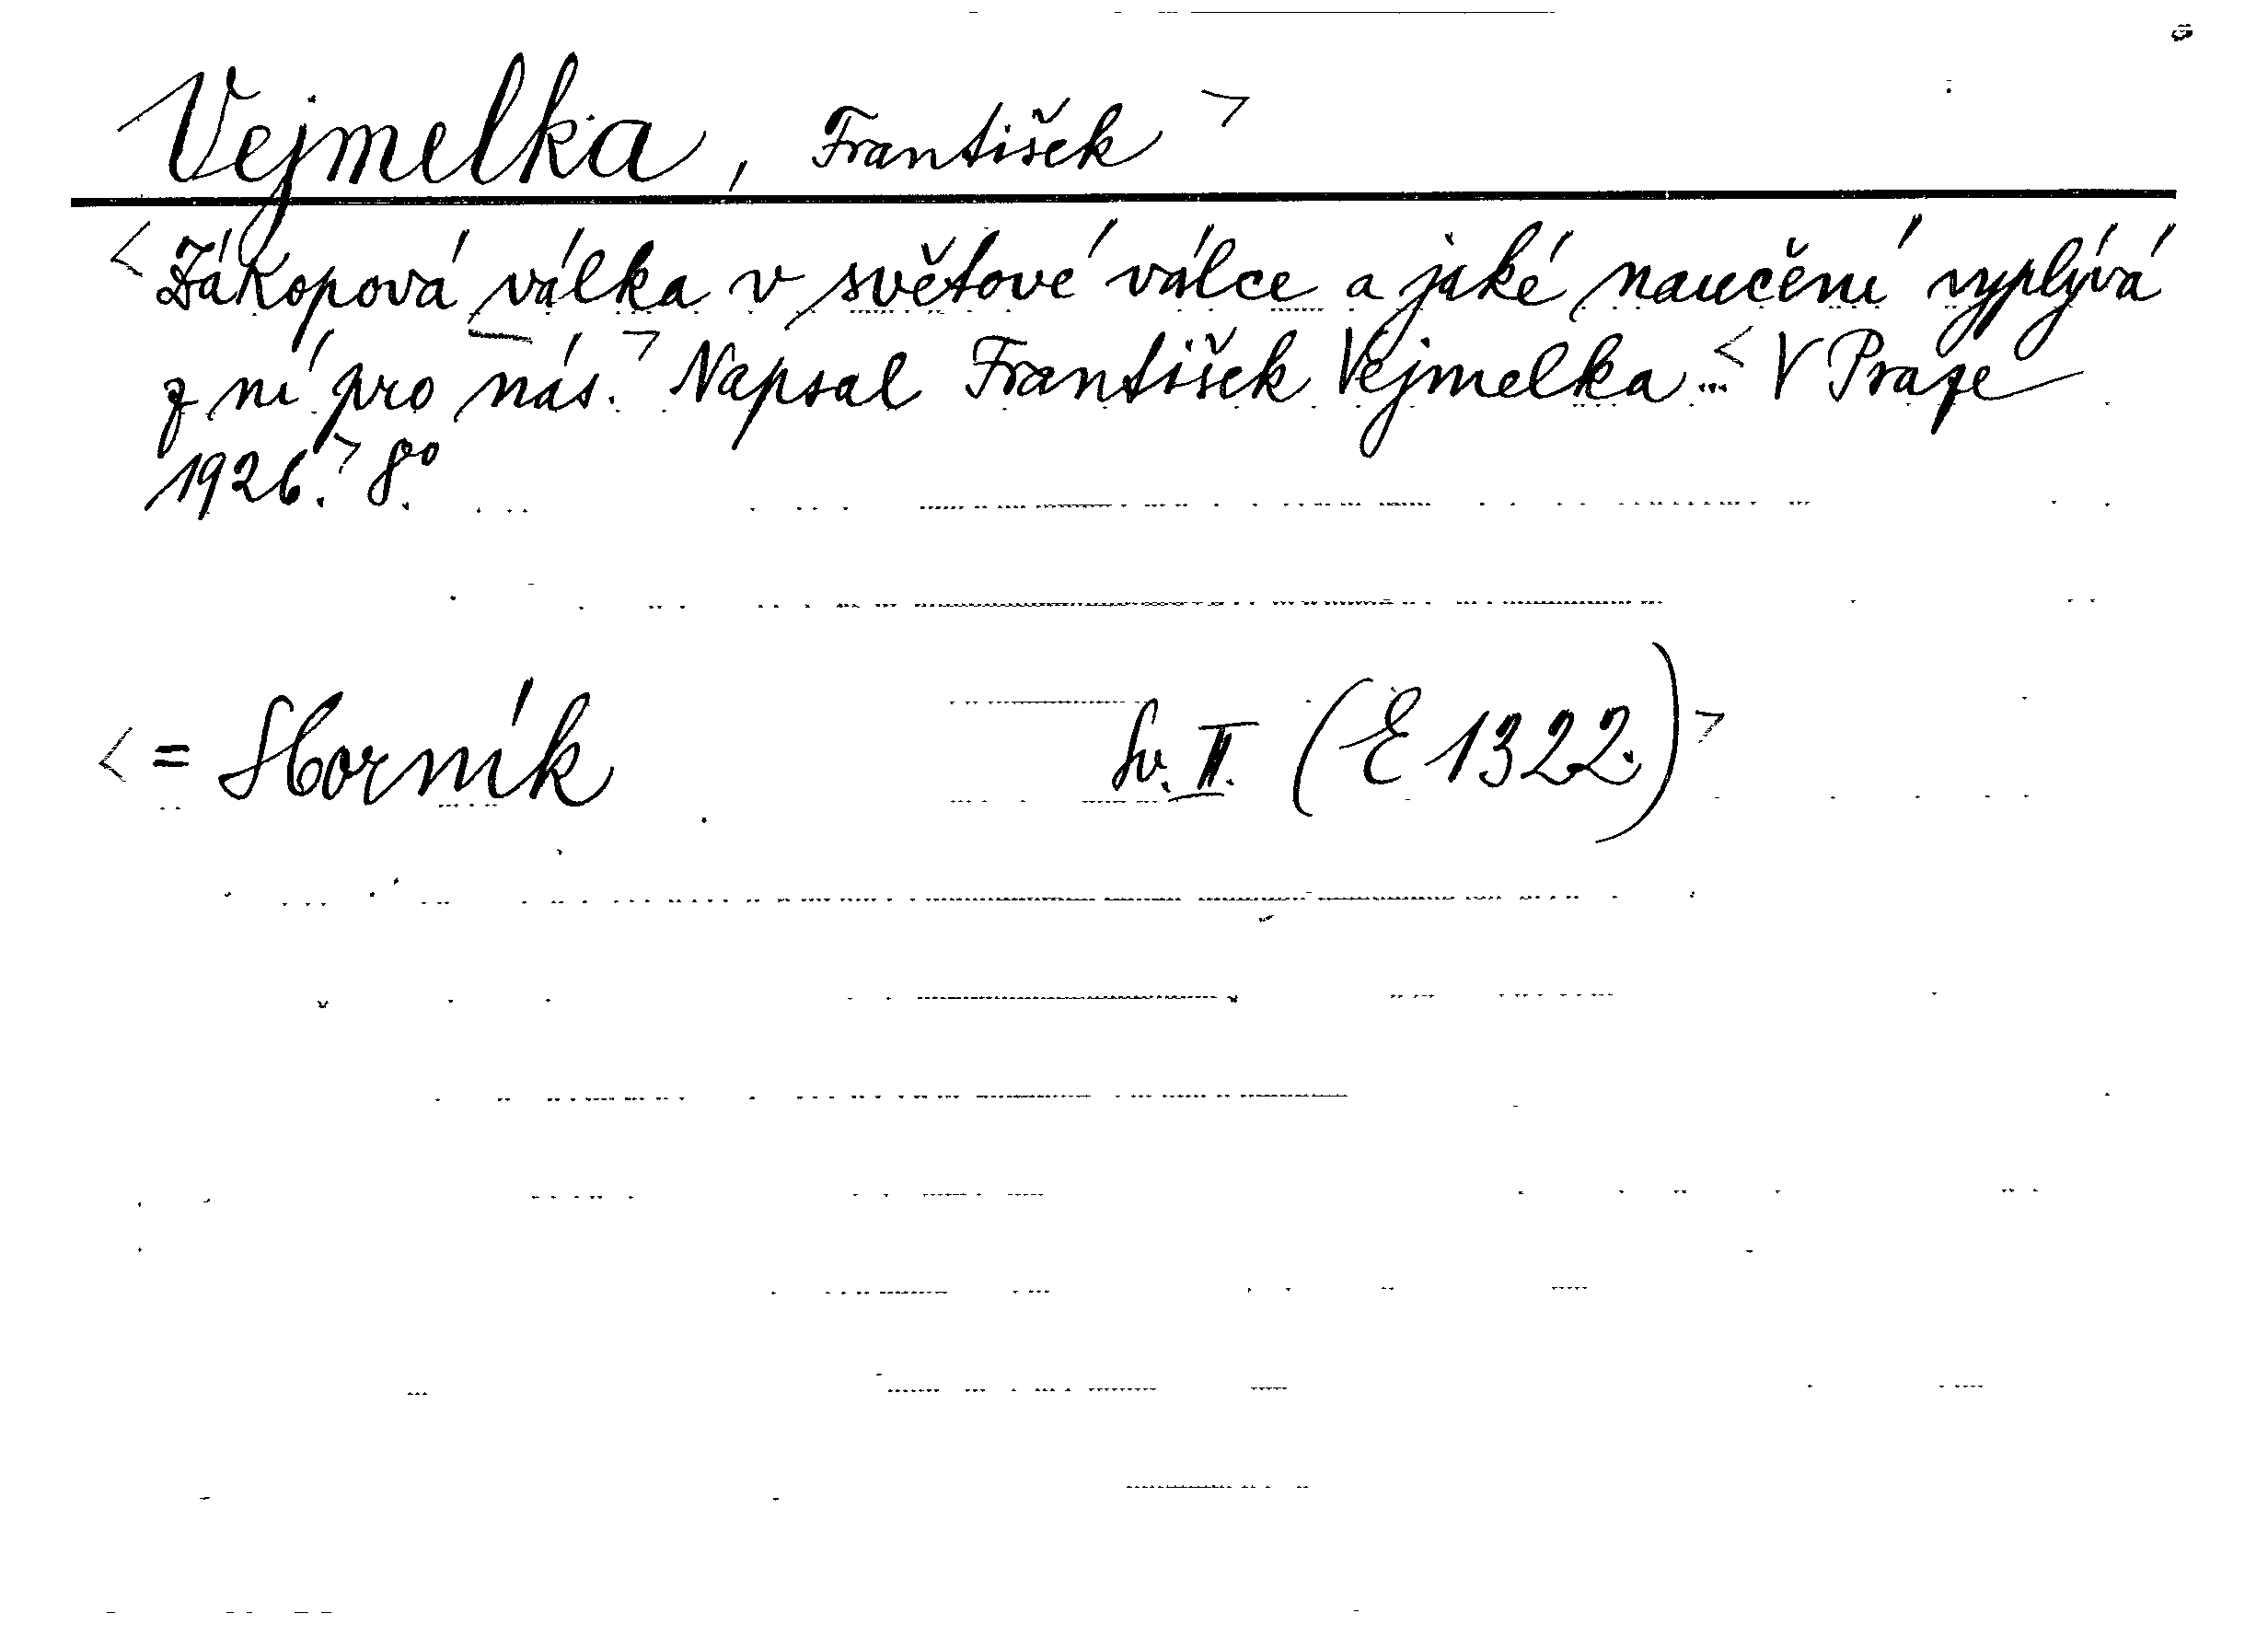 Vejmelka, František >
< Zákopová válka v světové válce a jaké naučení vyplývá
z ní pro nás. > Napsal František Vejmelka ... < V Praze
1926. > 8°.
< = Horník Sv. II. (E 1322.) >